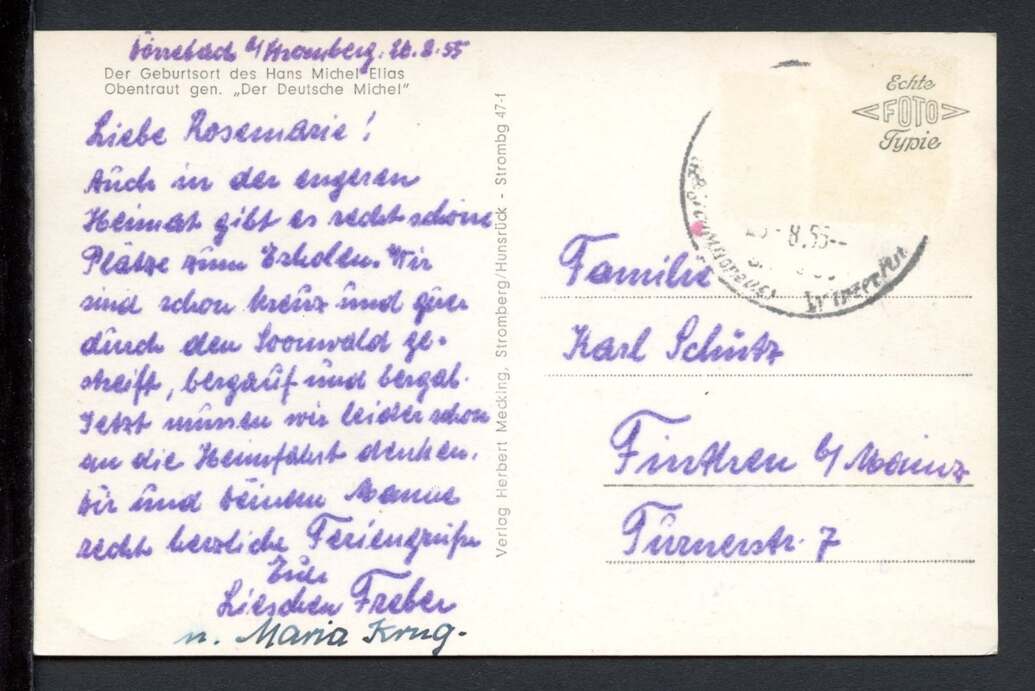 Dörrebach b/Stromberg. 20.8.55
Der Geburtsort des Hans Michel Elias
Obentraut gen. „Der Deutsche Michel"
Liebe Rosemarie!
Auch in der engeren
Heimat gibt es recht schöne
Plätze zum Erholen. Wir
sind schon kreuz und quer
durch den Soonwald ge-
streift, bergauf und bergab.
Jetzt müssen wir leider schon
an die Heimfahrt denken.
Dir und Deinem Manne
recht herzliche Feriengrüße
Eure
Lieschen Freber
u. Maria Krug.
Verlag Herbert Mecking, Stromberg/Hunsrück - Strombg 47-f
Echte
FOTO
Typie
8.55
Familie
Karl Schütz
Finthen b/Mainz
Turnerstr. 7